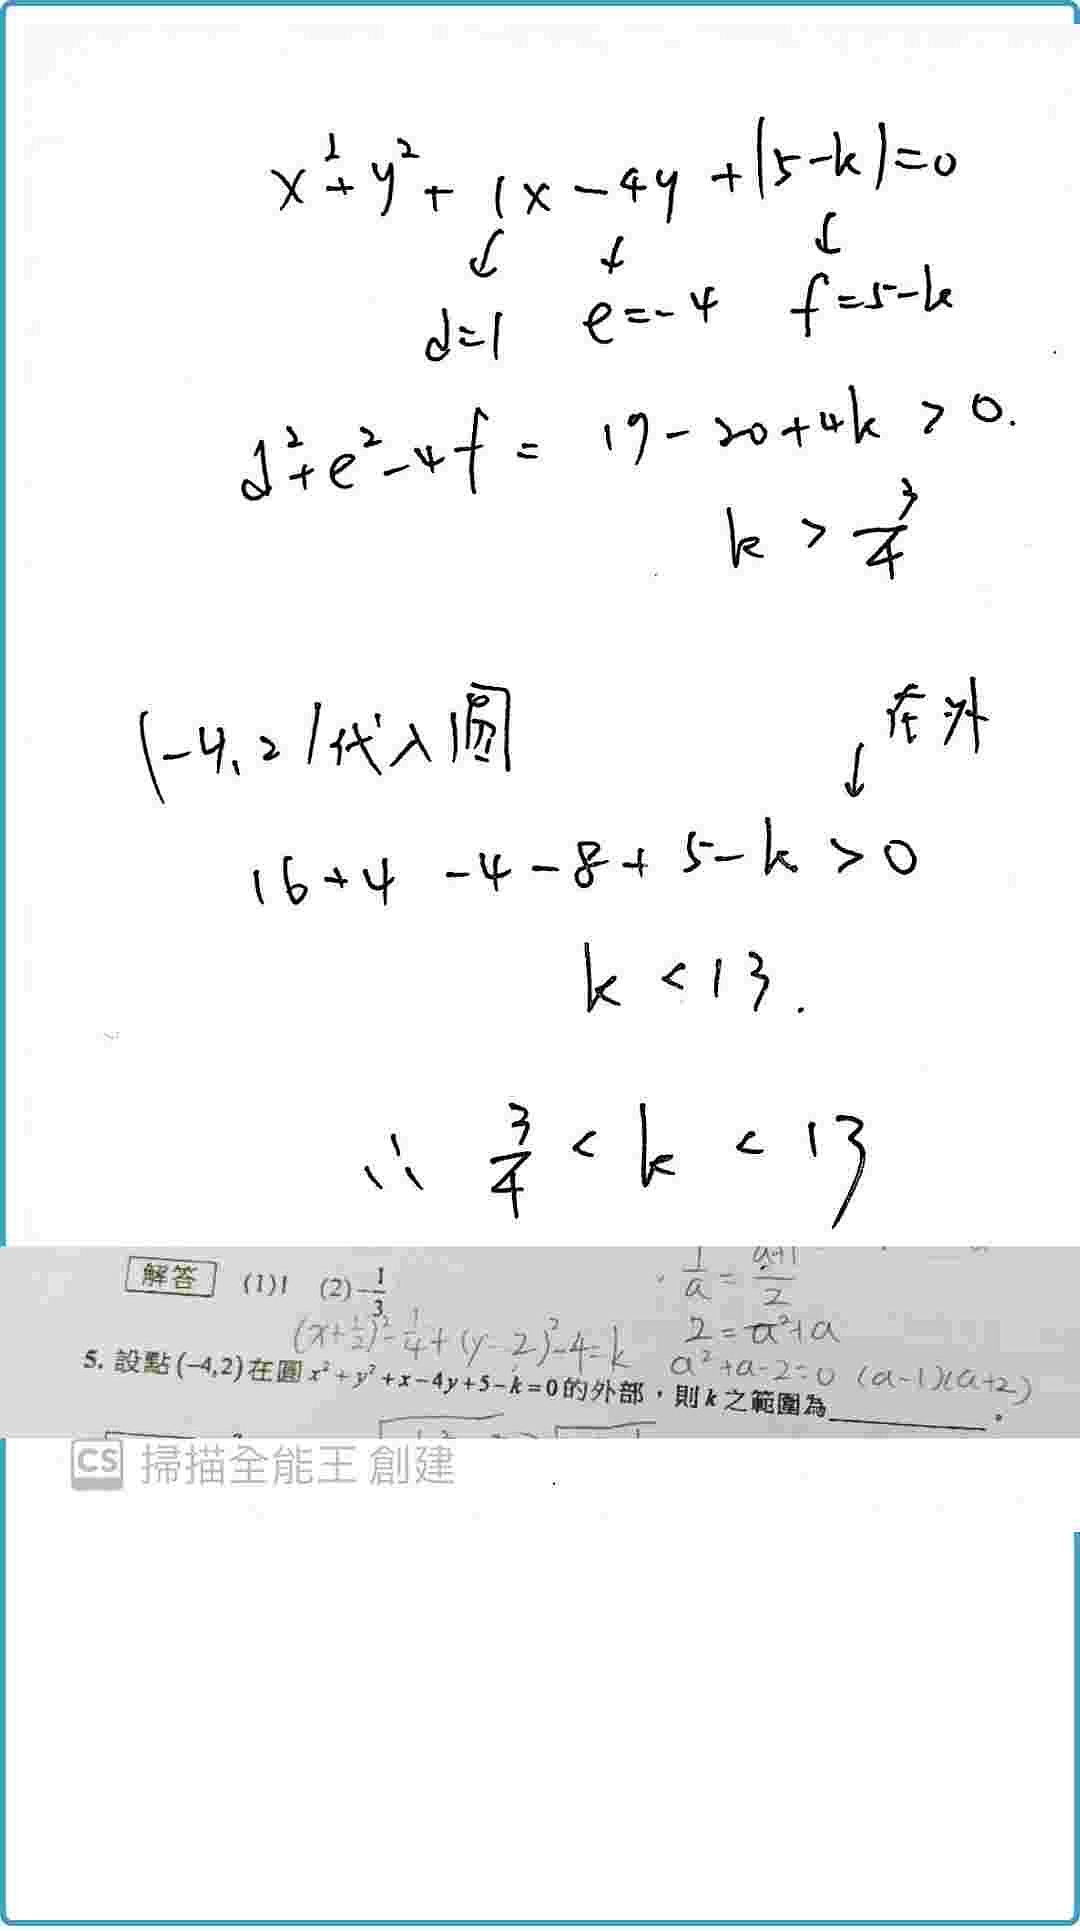 x²+y²+1x-4y+(5-k)=0
d=1 e=-4 f=5-k
d²+e²-4f= 17-20+4k>0.
k>3/4
(-4,2)代入圓
在外
16+4-4-8+5-k>0
k<13.
∴ 3/4<k<13
解答 (1)1 (2)-1/3
1/a=a+1/2
(x+1/2)²-1/4+(y-2)²-4=k
2=a²+a
a²+a-2=0 (a-1)(a+2)
5. 設點(-4,2)在圓x²+y²+x-4y+5-k=0的外部，則k之範圍為________。
CS 掃描全能王 創建